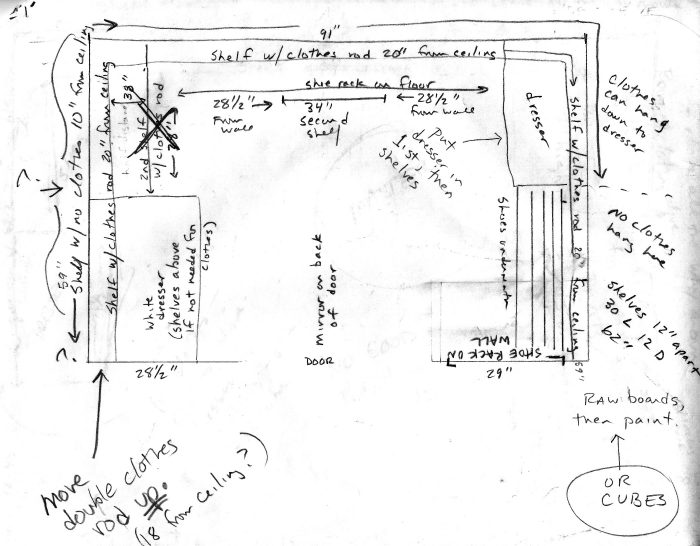 91"
Shelf w/ clothes rod 20" from ceiling
shoe rack on floor
28½"
from
wall
34"
second
shelf
28½"
from wall
38"
2nd shelf
w/ clothes rod
Shelf w/ no clothes 10" from ceiling
?
59"
?
Shelf w/ clothes rod 20" from ceiling
white
dresser
(shelves above
if not needed for
clothes)
28½"
Mirror on back
of door
DOOR
put
dresser in
1st, then
shelves
dresser
Shelf w/ clothes rod 20" from ceiling
Shoes underneath
SHOE RACK ON
WALL
62"
59"
clothes
can hang
down to
dresser
NO clothes
hang here
Shelves 12" apart
30 L 12 D
62"
RAW boards,
then paint.
OR
CUBES
Move
double clothes
rod up.
(18 from ceiling?)